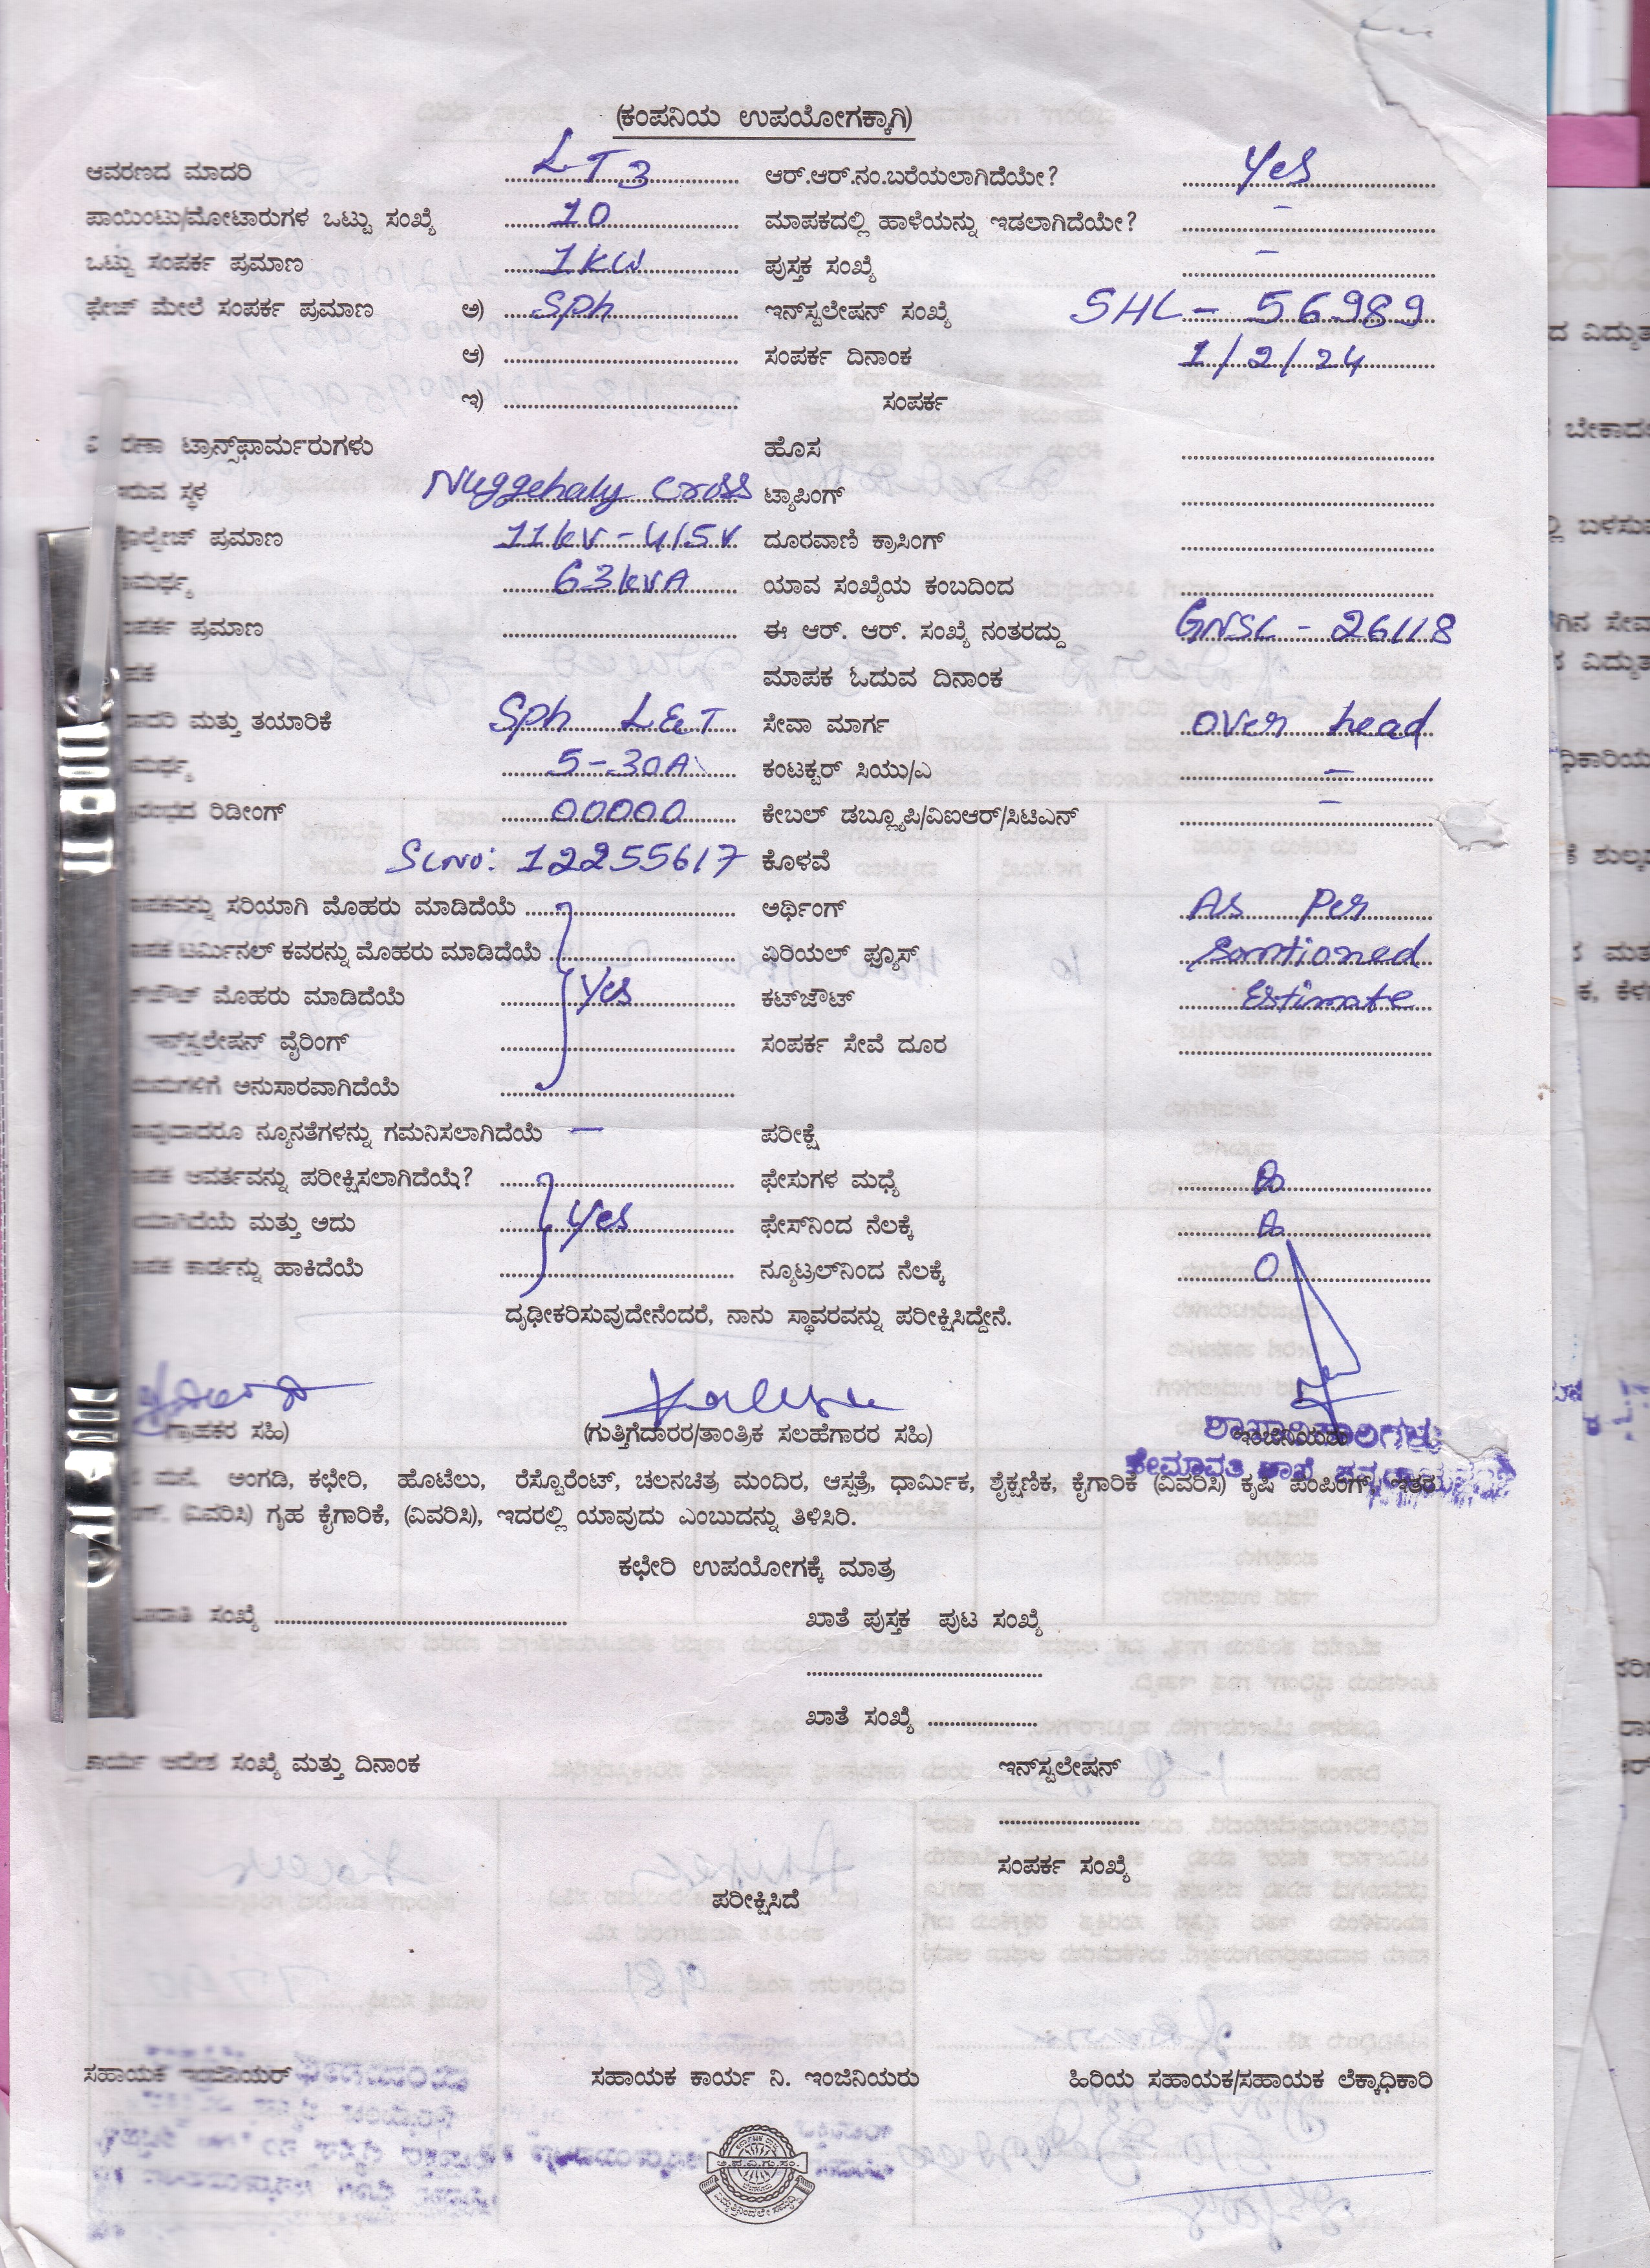 (ಕಂಪನಿಯ ಉಪಯೋಗಕ್ಕಾಗಿ)
ಆವರಣದ ಮಾದರಿ LT3 ಆರ್.ಆರ್.ನಂ.ಬರೆಯಲಾಗಿದೆಯೇ? Yes
ಪಾಯಿಂಟು/ಮೋಟಾರುಗಳ ಒಟ್ಟು ಸಂಖ್ಯೆ 10 ಮಾಪಕದಲ್ಲಿ ಹಾಳೆಯನ್ನು ಇಡಲಾಗಿದೆಯೇ? –
ಒಟ್ಟು ಸಂಪರ್ಕ ಪ್ರಮಾಣ 1KW ಪುಸ್ತಕ ಸಂಖ್ಯೆ –
ಫೇಜ್ ಮೇಲೆ ಸಂಪರ್ಕ ಪ್ರಮಾಣ ಅ) Sph ಇನ್‌ಸ್ಟಲೇಷನ್ ಸಂಖ್ಯೆ SHL - 56989
ಆ) ಸಂಪರ್ಕ ದಿನಾಂಕ 1/2/24
ಇ) ಸಂಪರ್ಕ
ಟ್ರಾನ್ಸ್‌ಫಾರ್ಮರುಗಳು ಹೊಸ
ಸ್ಥಳ Nuggehaly Cross ಟ್ಯಾಪಿಂಗ್
ಪ್ರಮಾಣ 11kV - 415V ದೂರವಾಣಿ ಕ್ರಾಸಿಂಗ್
63kVA ಯಾವ ಸಂಖ್ಯೆಯ ಕಂಬದಿಂದ
ಪ್ರಮಾಣ ಈ ಆರ್. ಆರ್. ಸಂಖ್ಯೆ ನಂತರದ್ದು GNSL - 26118
ಮಾಪಕ ಓದುವ ದಿನಾಂಕ
ಮತ್ತು ತಯಾರಿಕೆ Sph L&T ಸೇವಾ ಮಾರ್ಗ Over head
5-30A ಕಂಟಕ್ಟರ್ ಸಿಯು/ಎ –
ರಿಡೀಂಗ್ 00000 ಕೇಬಲ್ ಡಬ್ಲ್ಯೂಪಿ/ವಿಐಆರ್/ಸಿಟಿಎನ್ –
SLNO: 12255617 ಕೊಳವೆ
ಸರಿಯಾಗಿ ಮೊಹರು ಮಾಡಿದೆಯೆ ಅರ್ಥಿಂಗ್ As Per
ಟರ್ಮಿನಲ್ ಕವರನ್ನು ಮೊಹರು ಮಾಡಿದೆಯೆ ಏರಿಯಲ್ ಫ್ಯೂಸ್ Santioned
ಮೊಹರು ಮಾಡಿದೆಯೆ Yes ಕಟ್‌ಜೌಟ್ Estimate
ಇನ್‌ಸ್ಟಲೇಷನ್ ವೈರಿಂಗ್ ಸಂಪರ್ಕ ಸೇವೆ ದೂರ
ಅನುಸಾರವಾಗಿದೆಯೆ
ನ್ಯೂನತೆಗಳನ್ನು ಗಮನಿಸಲಾಗಿದೆಯೆ – ಪರೀಕ್ಷೆ
ಆವರ್ತವನ್ನು ಪರೀಕ್ಷಿಸಲಾಗಿದೆಯೆ? ಫೇಸುಗಳ ಮಧ್ಯೆ
ಮತ್ತು ಅದು Yes ಫೇಸ್‌ನಿಂದ ನೆಲಕ್ಕೆ
ಕಾರ್ಡನ್ನು ಹಾಕಿದೆಯೆ ನ್ಯೂಟ್ರಲ್‌ನಿಂದ ನೆಲಕ್ಕೆ 0
ದೃಢೀಕರಿಸುವುದೇನೆಂದರೆ, ನಾನು ಸ್ಥಾವರವನ್ನು ಪರೀಕ್ಷಿಸಿದ್ದೇನೆ.
ಗ್ರಾಹಕರ ಸಹಿ) (ಗುತ್ತಿಗೆದಾರರ/ತಾಂತ್ರಿಕ ಸಲಹೆಗಾರರ ಸಹಿ) ಇಂಜಿನಿಯರು
ಶಾಖಾಧಿಕಾರಿಗಳು
ಹೇಮಾವತಿ ಶಾಖೆ
ಮನೆ. ಅಂಗಡಿ, ಕಛೇರಿ, ಹೊಟೆಲು, ರೆಸ್ಟೊರೆಂಟ್, ಚಲನಚಿತ್ರ ಮಂದಿರ, ಆಸ್ಪತ್ರೆ, ಧಾರ್ಮಿಕ, ಶೈಕ್ಷಣಿಕ, ಕೈಗಾರಿಕೆ (ವಿವರಿಸಿ) ಕೃಷಿ ಪಂಪಿಂಗ್, ಇತರು
(ವಿವರಿಸಿ) ಗೃಹ ಕೈಗಾರಿಕೆ, (ವಿವರಿಸಿ), ಇದರಲ್ಲಿ ಯಾವುದು ಎಂಬುದನ್ನು ತಿಳಿಸಿರಿ.
ಕಛೇರಿ ಉಪಯೋಗಕ್ಕೆ ಮಾತ್ರ
ಸಂಖ್ಯೆ ಖಾತೆ ಪುಸ್ತಕ ಪುಟ ಸಂಖ್ಯೆ
ಖಾತೆ ಸಂಖ್ಯೆ
ಕಾರ್ಯ ಆದೇಶ ಸಂಖ್ಯೆ ಮತ್ತು ದಿನಾಂಕ ಇನ್‌ಸ್ಟಲೇಷನ್
ಸಂಪರ್ಕ ಸಂಖ್ಯೆ
ಪರೀಕ್ಷಿಸಿದೆ
ಸಹಾಯಕ ಇಂಜಿನಿಯರ್ ಸಹಾಯಕ ಕಾರ್ಯ ನಿ. ಇಂಜಿನಿಯರು ಹಿರಿಯ ಸಹಾಯಕ/ಸಹಾಯಕ ಲೆಕ್ಕಾಧಿಕಾರಿ